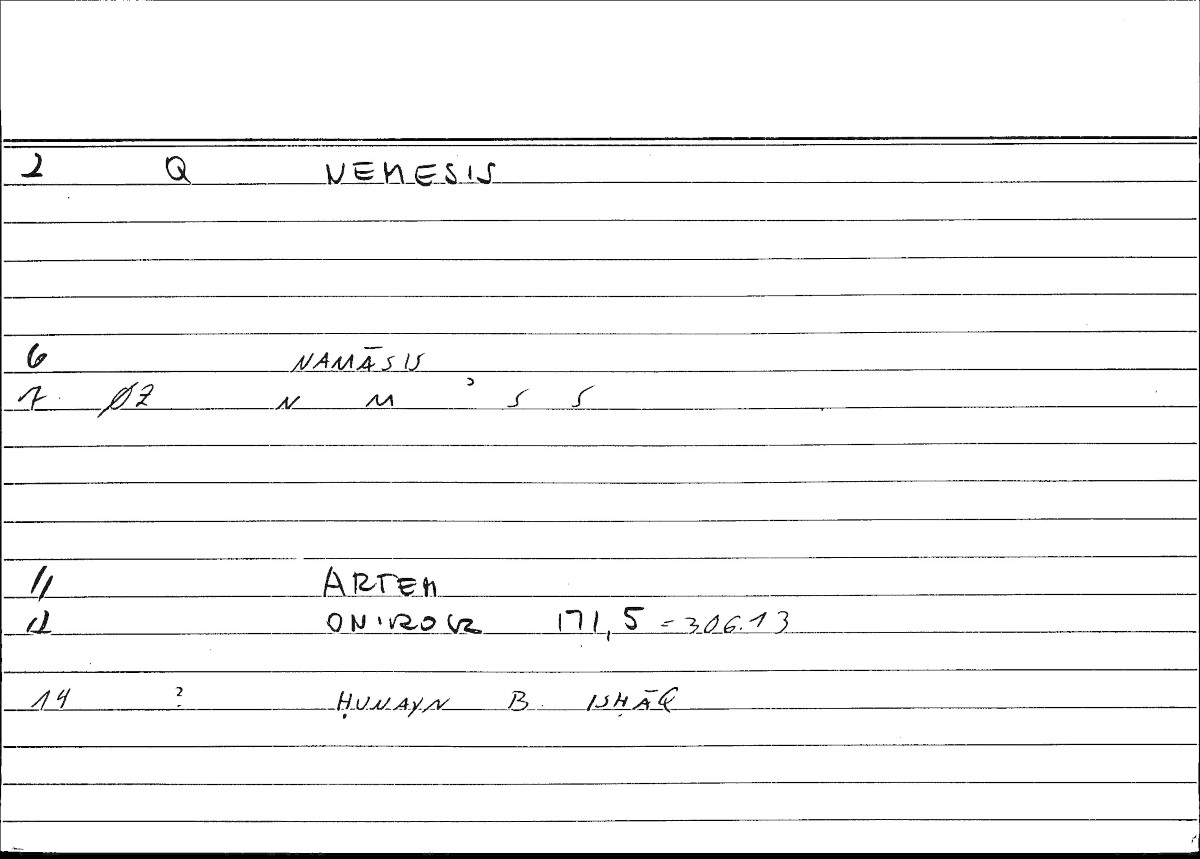 2 Q NEMESIS
6 NAMĀSIS
7 ØZ N M ʾ S S
11 ARTEM
12 ONIROCR 171,5 = 306.13
14 ? ḤUNAYN B. ISḤĀQ